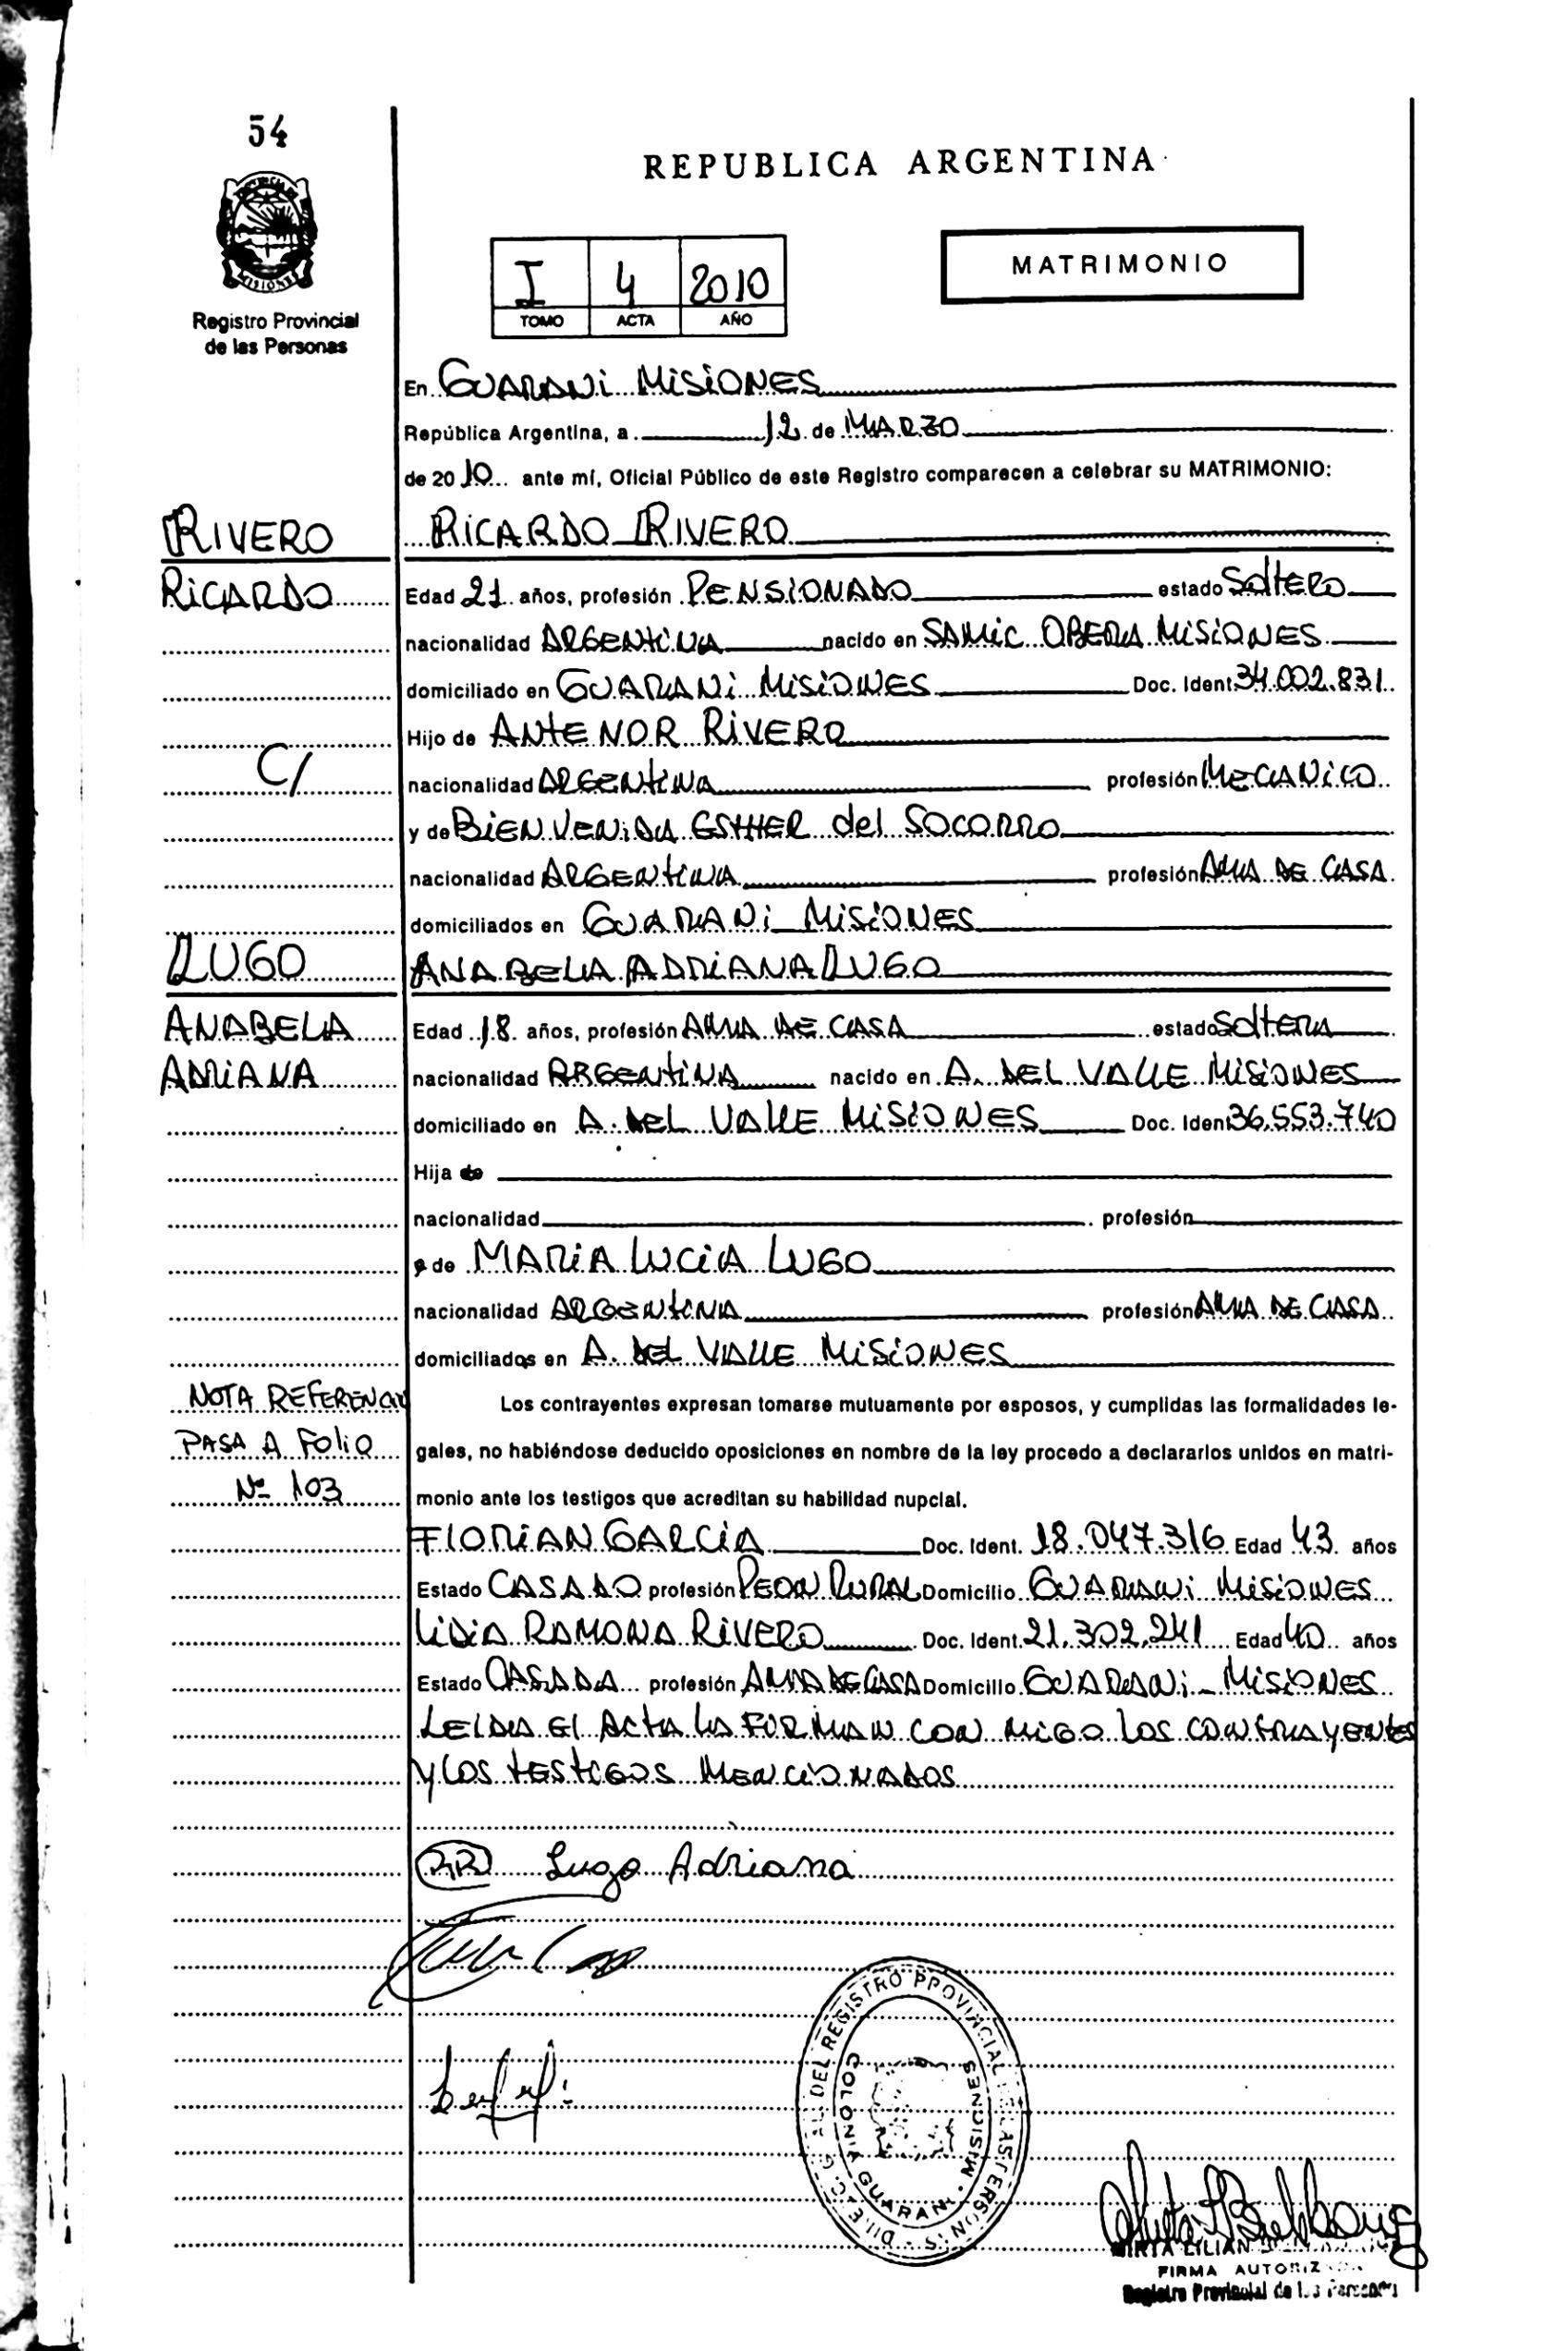 54
REPUBLICA ARGENTINA
MISIONES
Registro Provincial
de las Personas
I 4 2010
TOMO ACTA AÑO
MATRIMONIO
En GUARANI MISIONES
República Argentina, a 12 de MARZO
de 2010 ante mí, Oficial Público de este Registro comparecen a celebrar su MATRIMONIO:
RIVERO RICARDO RIVERO
RICARDO Edad 21 años, profesión PENSIONADO estado SOLTERO
nacionalidad ARGENTINA nacido en SAMIC OBERA MISIONES
domiciliado en GUARANI MISIONES Doc. Ident. 34.002.831
Hijo de ANTENOR RIVERO
C/ nacionalidad ARGENTINA profesión MECANICO
y de BIENVENIDA ESTHER del SOCORRO
nacionalidad ARGENTINA profesión AMA DE CASA
domiciliados en GUARANI MISIONES
LUGO ANABELA ADRIANA LUGO
ANABELA Edad 18 años, profesión AMA DE CASA estado SOLTERA
ADRIANA nacionalidad ARGENTINA nacido en A. DEL VALLE MISIONES
domiciliado en A. DEL VALLE MISIONES Doc. Ident 36.553.740
Hija de
nacionalidad profesión
de MARIA LUCIA LUGO
nacionalidad ARGENTINA profesión AMA DE CASA
domiciliados en A. DEL VALLE MISIONES
NOTA REFERENCIA Los contrayentes expresan tomarse mutuamente por esposos, y cumplidas las formalidades le-
PASA A FOLIO gales, no habiéndose deducido oposiciones en nombre de la ley procedo a declararlos unidos en matri-
Nº 103 monio ante los testigos que acreditan su habilidad nupcial.
FLORIAN GARCIA Doc. Ident. 18.047.316 Edad 43 años
Estado CASADO profesión PEON RURAL Domicilio GUARANI MISIONES
LIDIA RAMONA RIVERO Doc. Ident. 21.302.241 Edad 40 años
Estado CASADA profesión AMA DE CASA Domicilio GUARANI - MISIONES
LEIDA El ACTA LA FIRMAN CON MIGO LOS CONTRAYENTES
Y LOS TESTIGOS MENCIONADOS
RR Lugo Adriana
DIREC. GRAL. DEL REGISTRO PROVINCIAL DE LAS PERSONAS
COLONIA GUARANI - MISIONES
MIRTA LILIAN
FIRMA AUTORIZADA
Registro Provincial de las Personas